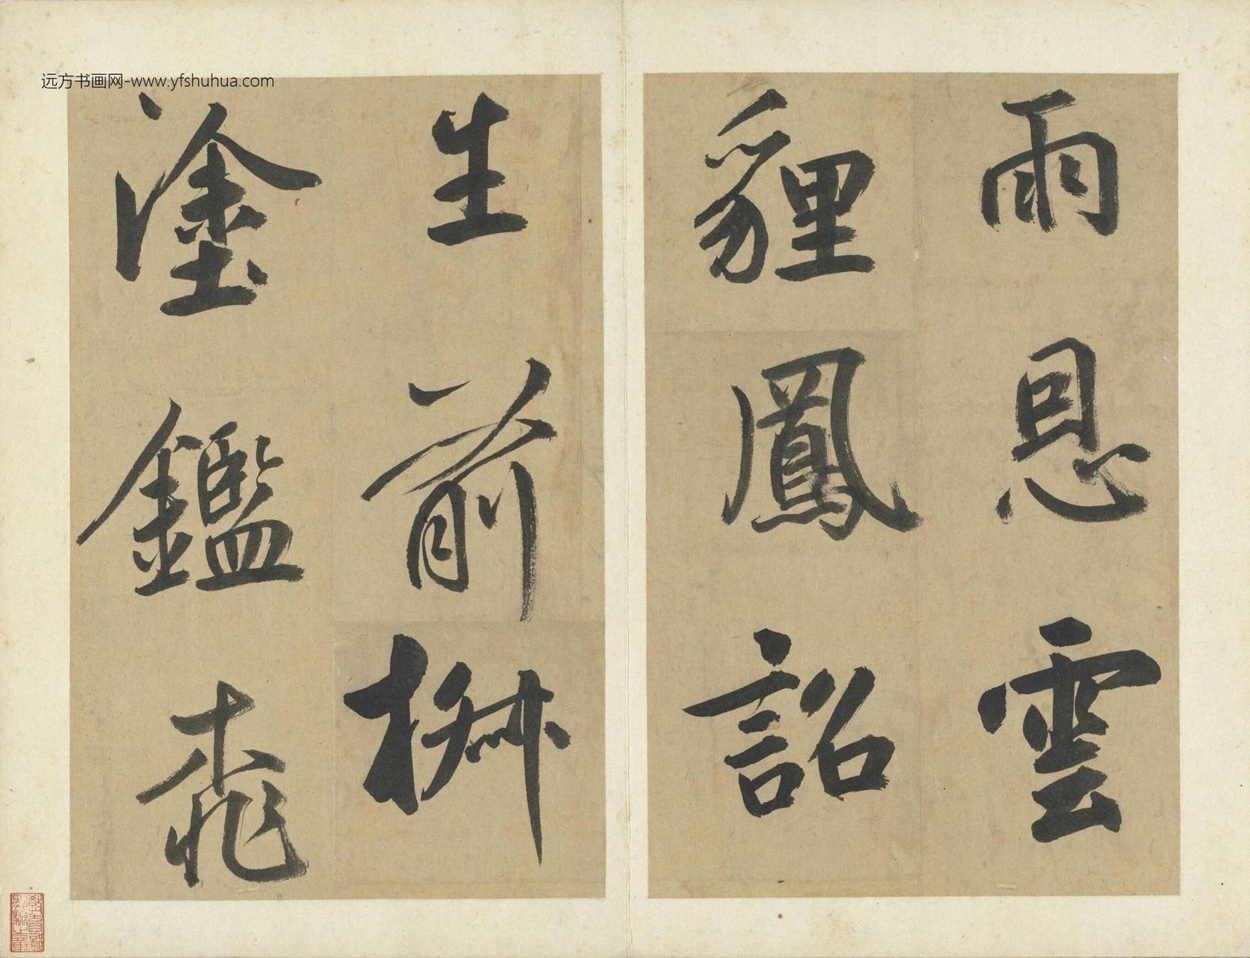 雨恩雲
貍鳳詔
生前
塗鑑
远方书画网-www.yfshuhua.com